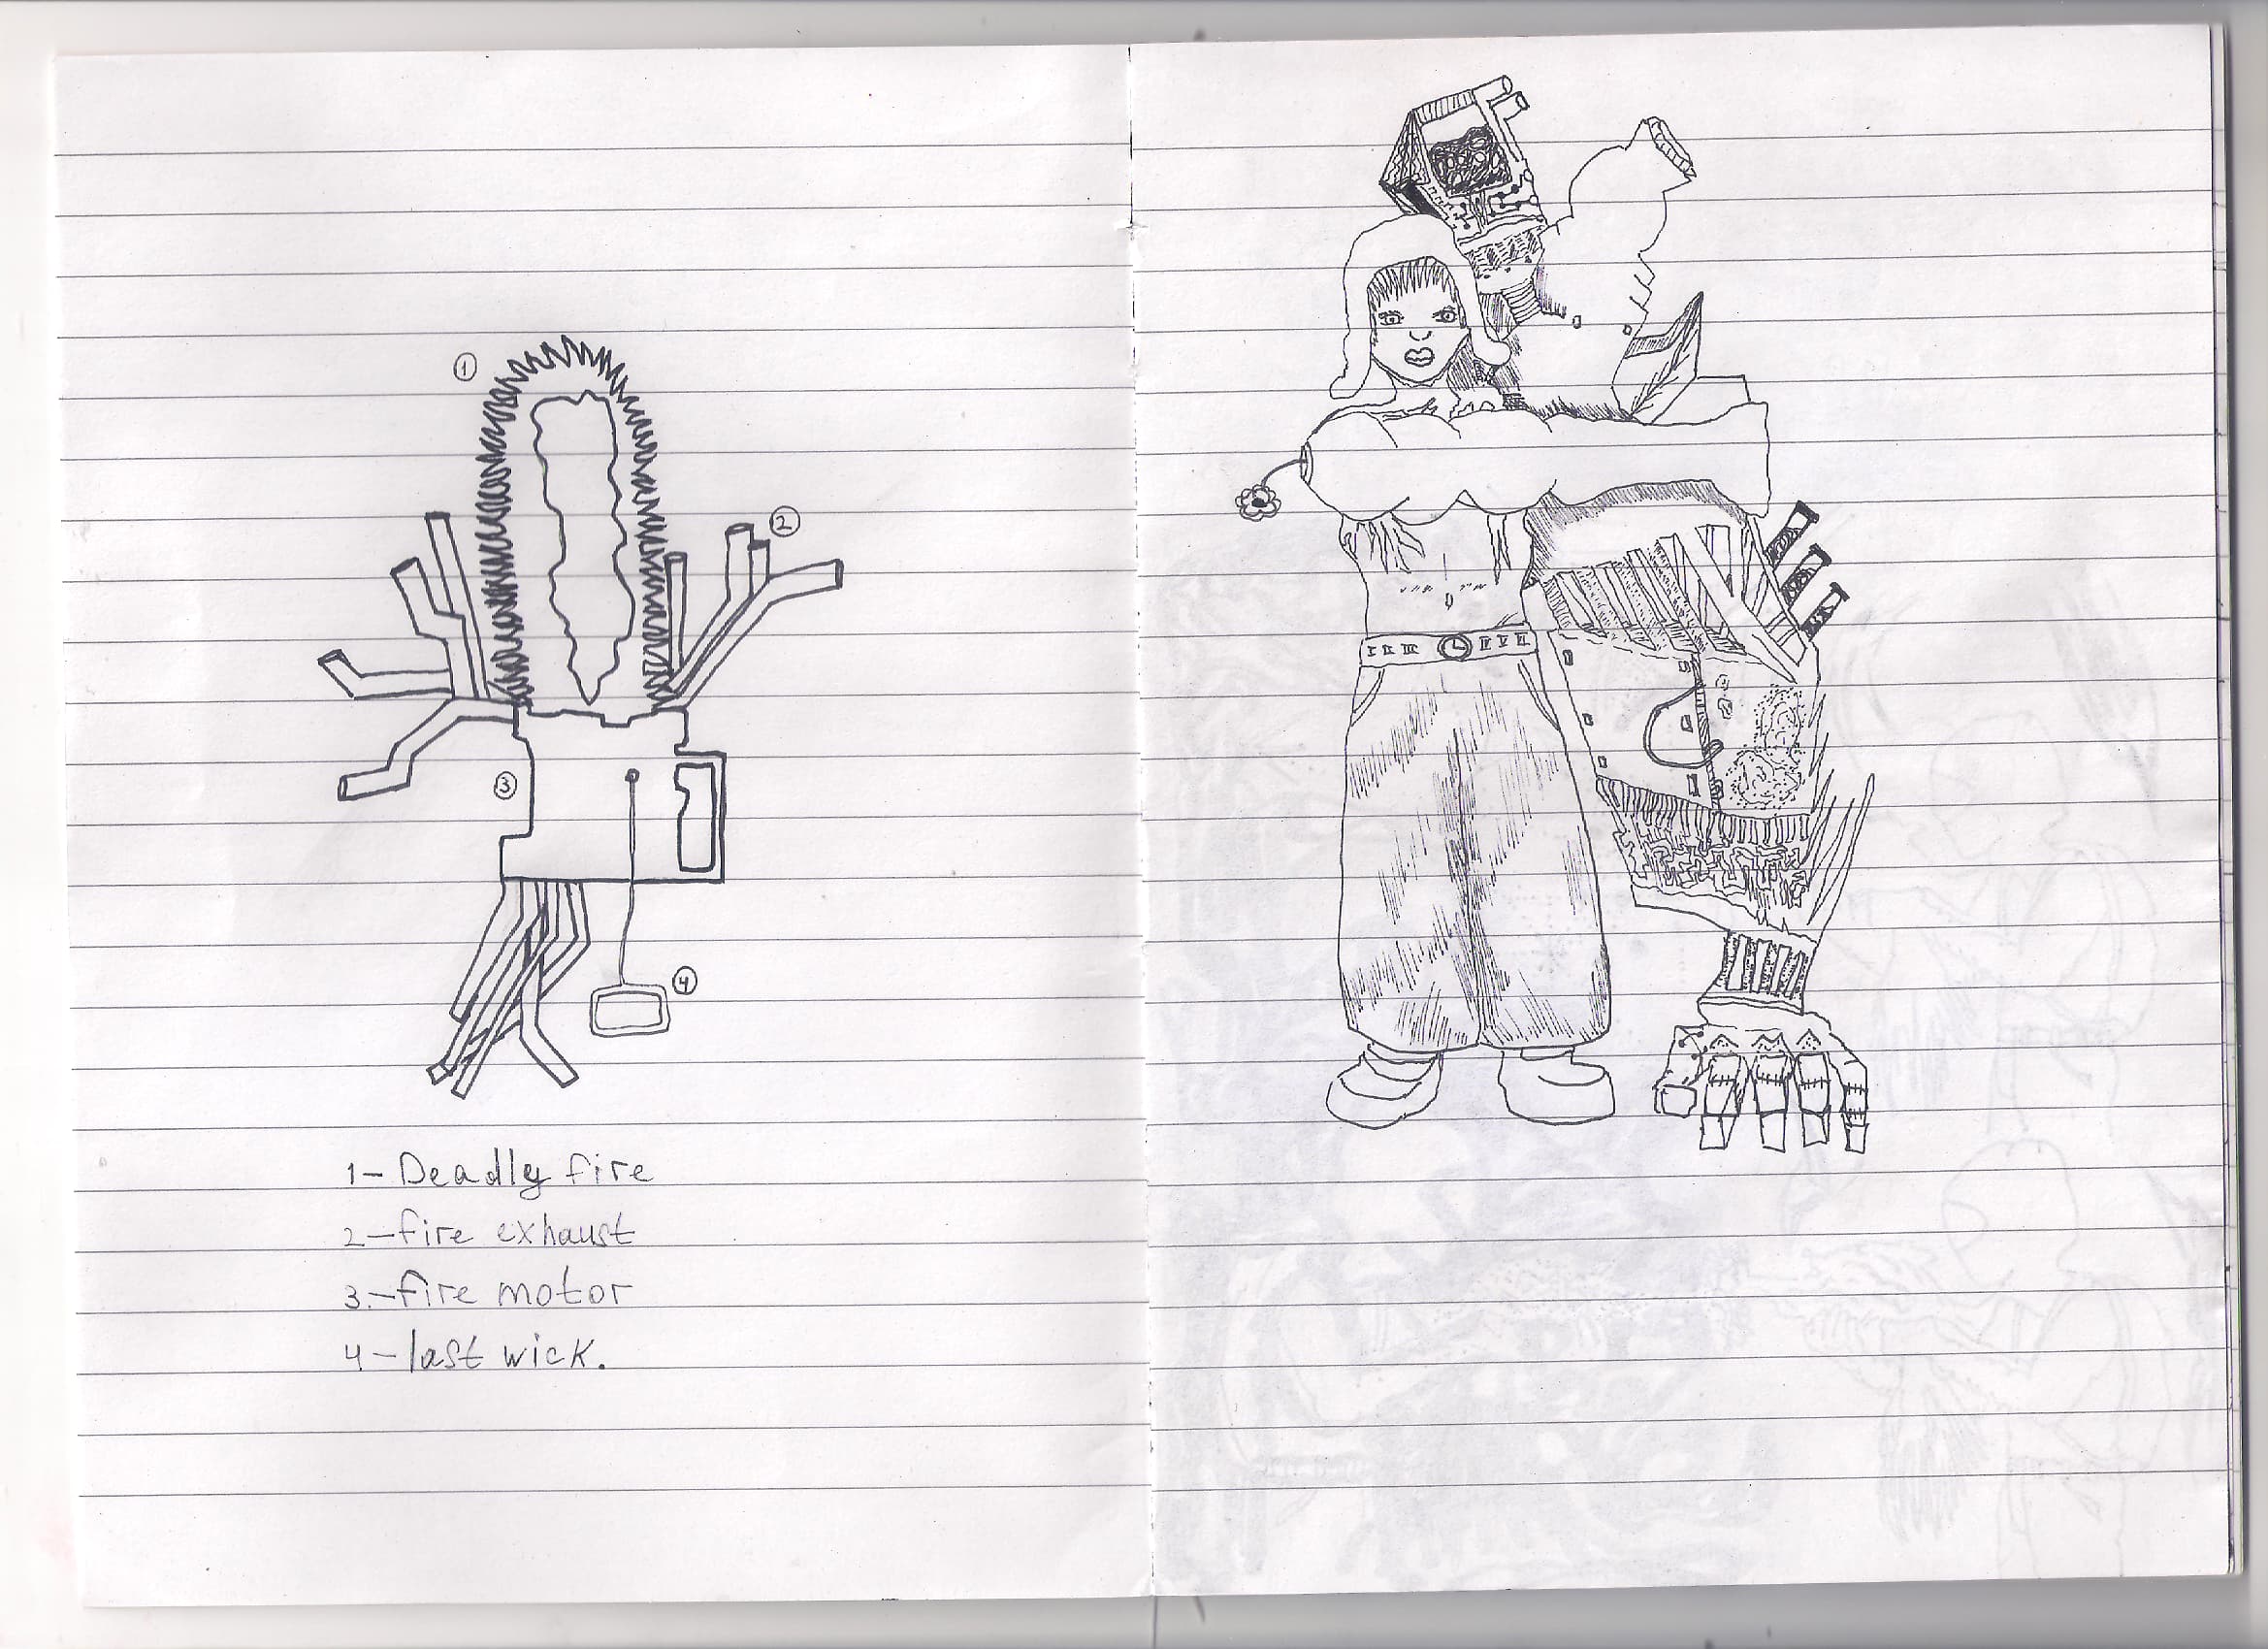 1
2
3
4
1- Deadly fire
2-fire exhaust
3.-fire motor
4-last wick.
I II III IV V VI